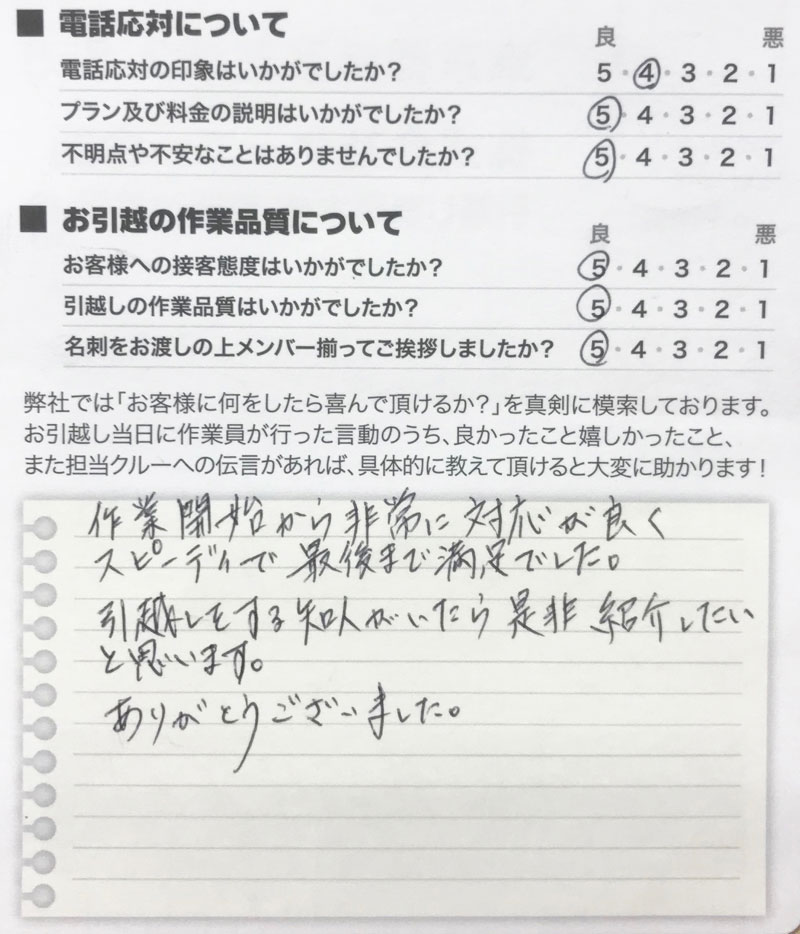 ■ 電話応対について
良 悪
電話応対の印象はいかがでしたか? 5・4・3・2・1
プラン及び料金の説明はいかがでしたか? 5・4・3・2・1
不明点や不安なことはありませんでしたか? 5・4・3・2・1
■ お引越の作業品質について
良 悪
お客様への接客態度はいかがでしたか? 5・4・3・2・1
引越しの作業品質はいかがでしたか? 5・4・3・2・1
名刺をお渡しの上メンバー揃ってご挨拶しましたか? 5・4・3・2・1
弊社では「お客様に何をしたら喜んで頂けるか?」を真剣に模索しております。
お引越し当日に作業員が行った言動のうち、良かったこと嬉しかったこと、
また担当クルーへの伝言があれば、具体的に教えて頂けると大変に助かります!
作業開始から非常に対応が良く
スピーディで最後まで満足でした。
引越しをする知人がいたら是非紹介したい
と思います。
ありがとうございました。